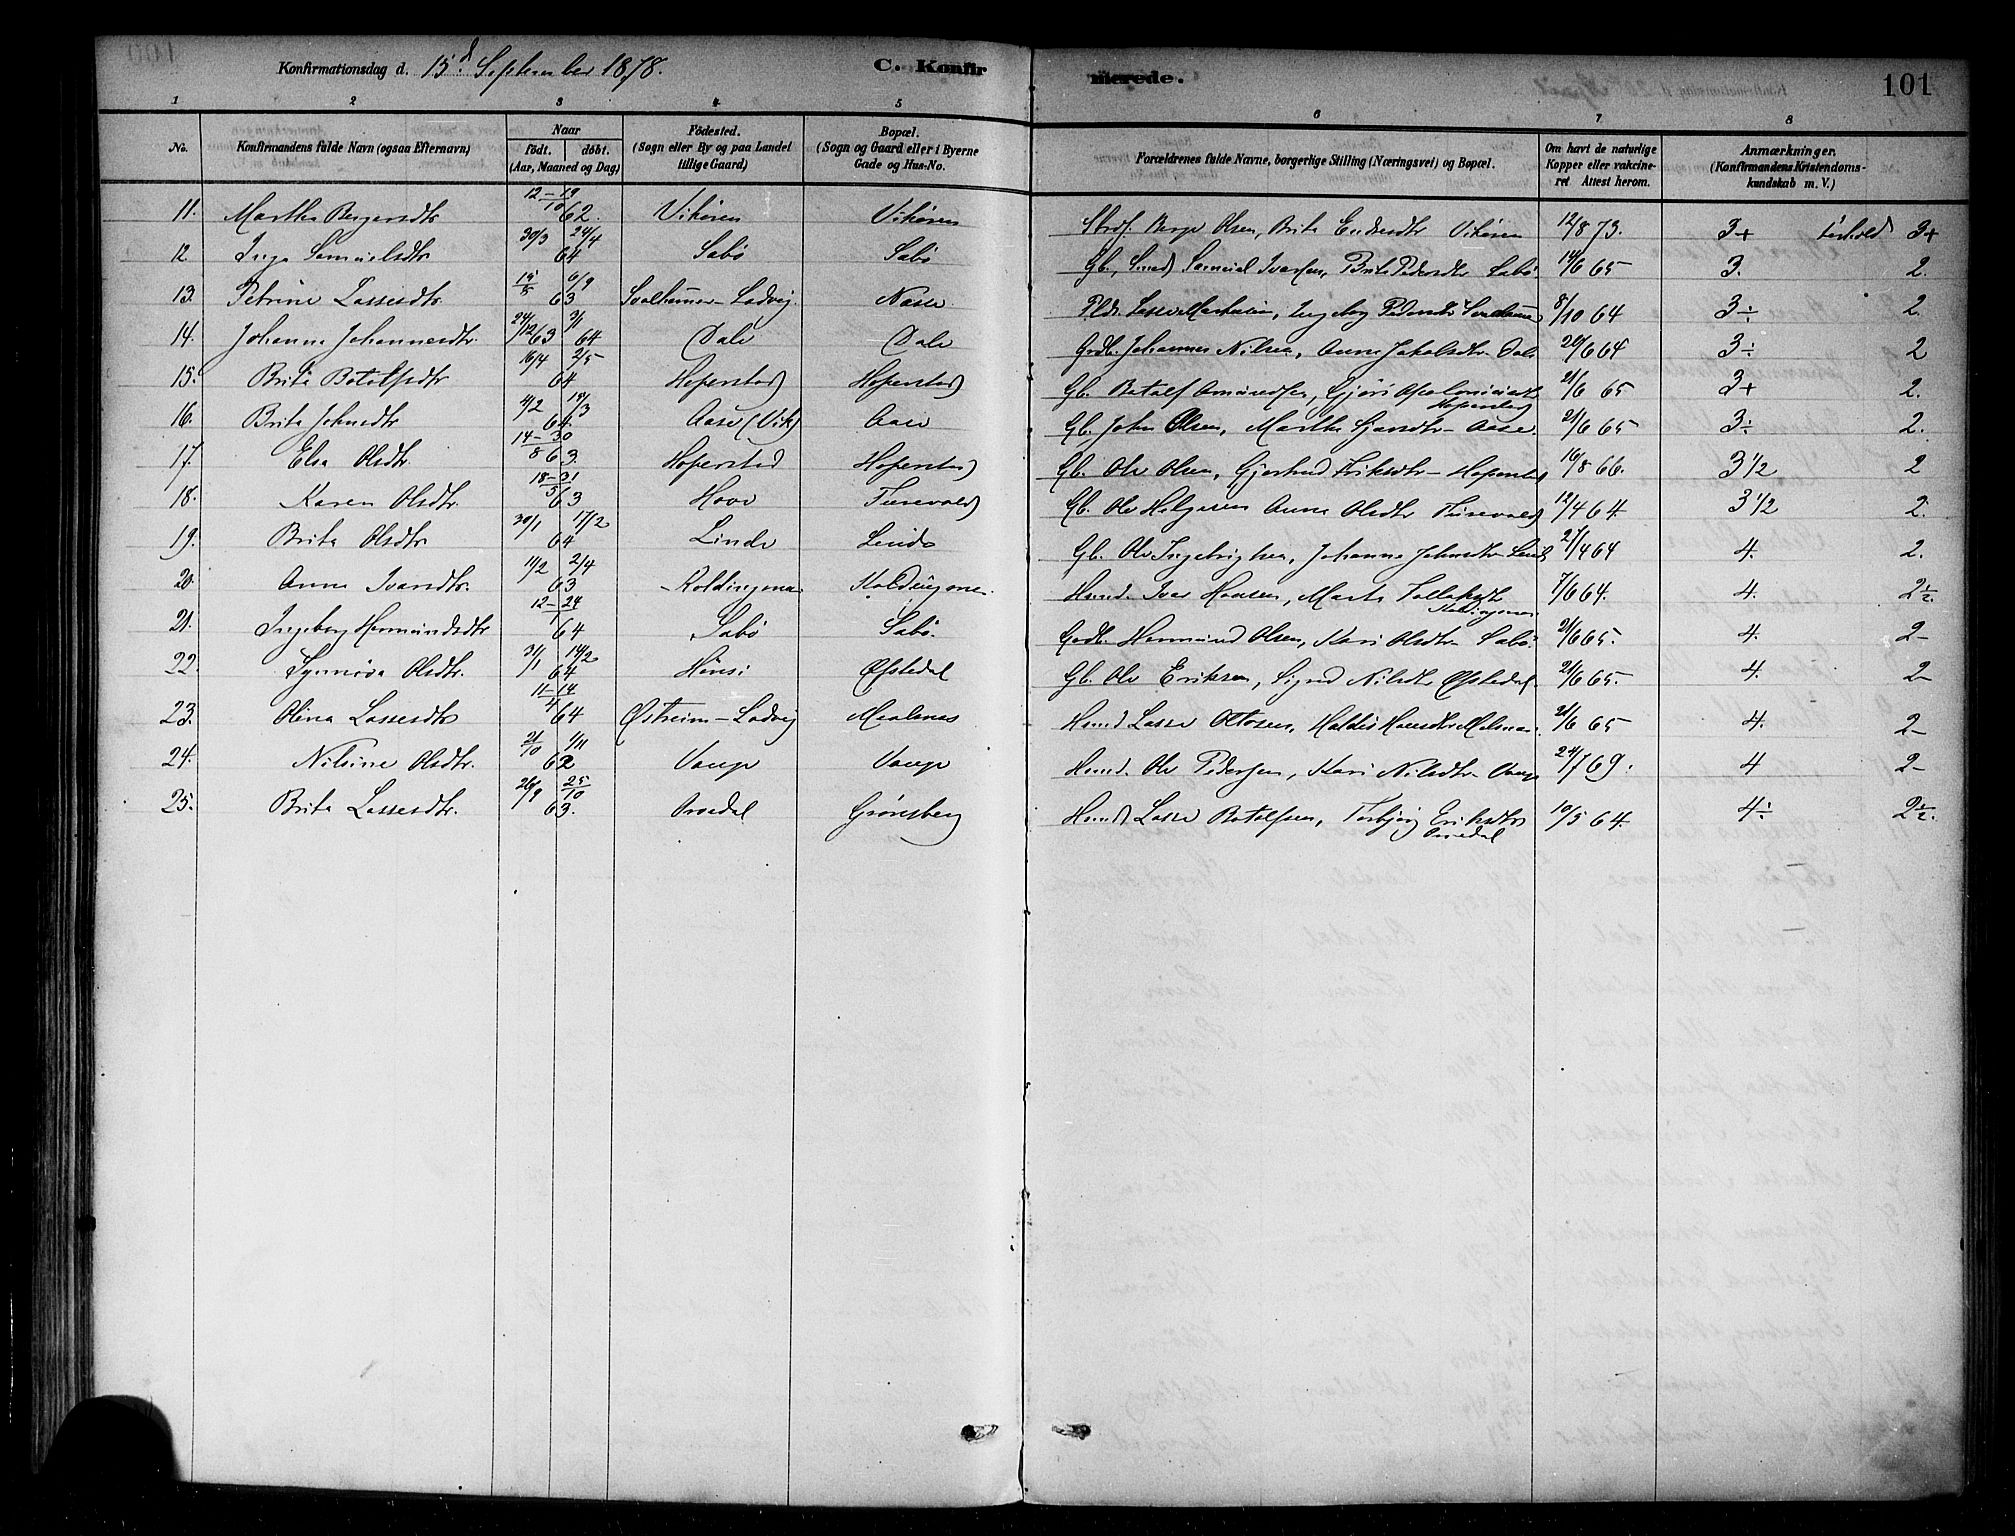 Konfirmationsdag d. 15.d September 1878. C. Konfirmerede. 101
1 2 3 4 5 6 7 8
No. Konfirmandens fulde Navn (ogsaa Efternavn) Naar Födt. döbt. (Aar, Maaned og Dag) Födested. (Sogn eller By og paa Landet tillige Gaard) Bopæl. (Sogn og Gaard eller i Byerne Gade og Hus-No. Forældrenes fulde Navne, borgerlige Stilling (Næringsvei) og Bopæl. Om havt de naturlige Kopper eller vakcineret Attest herom. Anmærkninger. (Konfirmandens Kristendomskundskab m. V.)
11. Martha Bergersdtr 12-19/10 62. Vikören Vikören Berge Olsen, Brita Endresdtr Vikören 12/8 73. 3+ forhold 3+
12 Inga Samuelsdtr 30/3 24/4 64 Sabö Sabö Gb., Smed Samuel Ivarsen, Brita Pedersdtr Sabö 14/6 65 3. 2.
13. Petrine Lassesdtr. 15/8 6/9 63 Svalheimer-Ladvig Nasse 8/10 64 3÷ 2.
14. Johanna Johannesdtr. 24/12 63 3/1 64 Dale Dale Grdb. Johannes Nilsen, Anna Jakobsdtr. Dale 20/6 64 3÷ 2
15. Brita Botolfsdtr 16/4 2/5 64 Hoperstad Hoperstad Gb. Botolf Amundsen, Gjöri Hoperstad 21/6 65 3+ 2.
16. Brita Johnsdtr 11/2 13/3 64. Aase (Vik) Aase Gb. John Olsen, Martha Aase 21/6 65 3÷ 2.
17. Elsa Olsdtr. 14-30/8 63. Hoperstad Hoperstad Gb. Ole Olsen, Gjertrud Eriksdtr Hoperstad 16/8 66. 3 1/2 2
18. Karen Olsdtr. 18-31/5 63 Hove Turevold Gb. Ole Helgesen Anna Olsdtr Turevold 12/4 64. 3 1/2 2.
19. Brita Olsdtr 30/1 17/2 64 Linde Linde Gb. Ole Ingebrigtsen, Johanna Johnsdtr Linde 27/4 64 4. 2.
20. Anna Ivarsdtr. 11/2 2/4 63 Koldingsnes Koldingsnes Husmd. Ivar Hansen, Marta Koldingsnes 7/6 64. 4. 2½.
21. Ingeborg Hermundsdtr 12-24/1 64 Sabö Sabö. Grdb. Hermund Olsen, Kari Olsdtr Sabö. 21/6 65. 4. 2-
22. Synnöva Olsdtr. 31/1 14/2 64 Hönsi Öfstedal Gb. Ole Eriksen, Sigrid Nilsdtr Öfstedal 21/6 65. 4. 2-
23. Olina Lassesdtr 11-14/4 64 Østreim-Ladvig Maalsnes Husmd Lasse Ottosen, 21/6 65 4. 2-
24. Nilsine Olsdtr. 21/10 1/11 62 Vange Vange Husmd. Ole Pedersen, Kari Nilsdtr Vange 24/7 69. 4 2-
25. Brita Lassesdtr. 26/9 25/10 63. Ovredal Grönsberg Husmd Lasse Botolfsen, Torbjör Eriksdtr Ovredal 10/5 64. 4÷ 2½.